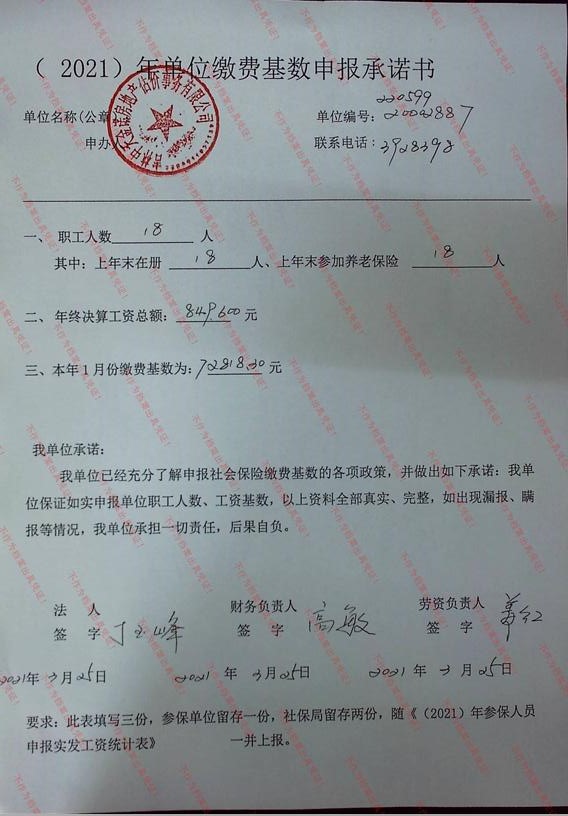 （ 2021）年单位缴费基数申报承诺书
220599
单位名称(公章
单位编号：20002887
申办
联系电话：3928398
吉林中天金诺房地产估价事务有限公司
一、 职工人数 18 人
其中：上年末在册 18 人、上年末参加养老保险 18 人
二、 年终决算工资总额：849600 元
三、本年1月份缴费基数为：72818.20 元
我单位承诺：
我单位已经充分了解申报社会保险缴费基数的各项政策，并做出如下承诺：我单
位保证如实申报单位职工人数、工资基数，以上资料全部真实、完整，如出现漏报、瞒
报等情况，我单位承担一切责任，后果自负。
法 人 财务负责人 劳资负责人
签 字 丁玉峰 签 字 高敏 签 字
2021年 3月25日 2021 年 3月25日 2021 年 3 月25日
要求：此表填写三份，参保单位留存一份，社保局留存两份，随《（2021）年参保人员
申报实发工资统计表》 一并上报。